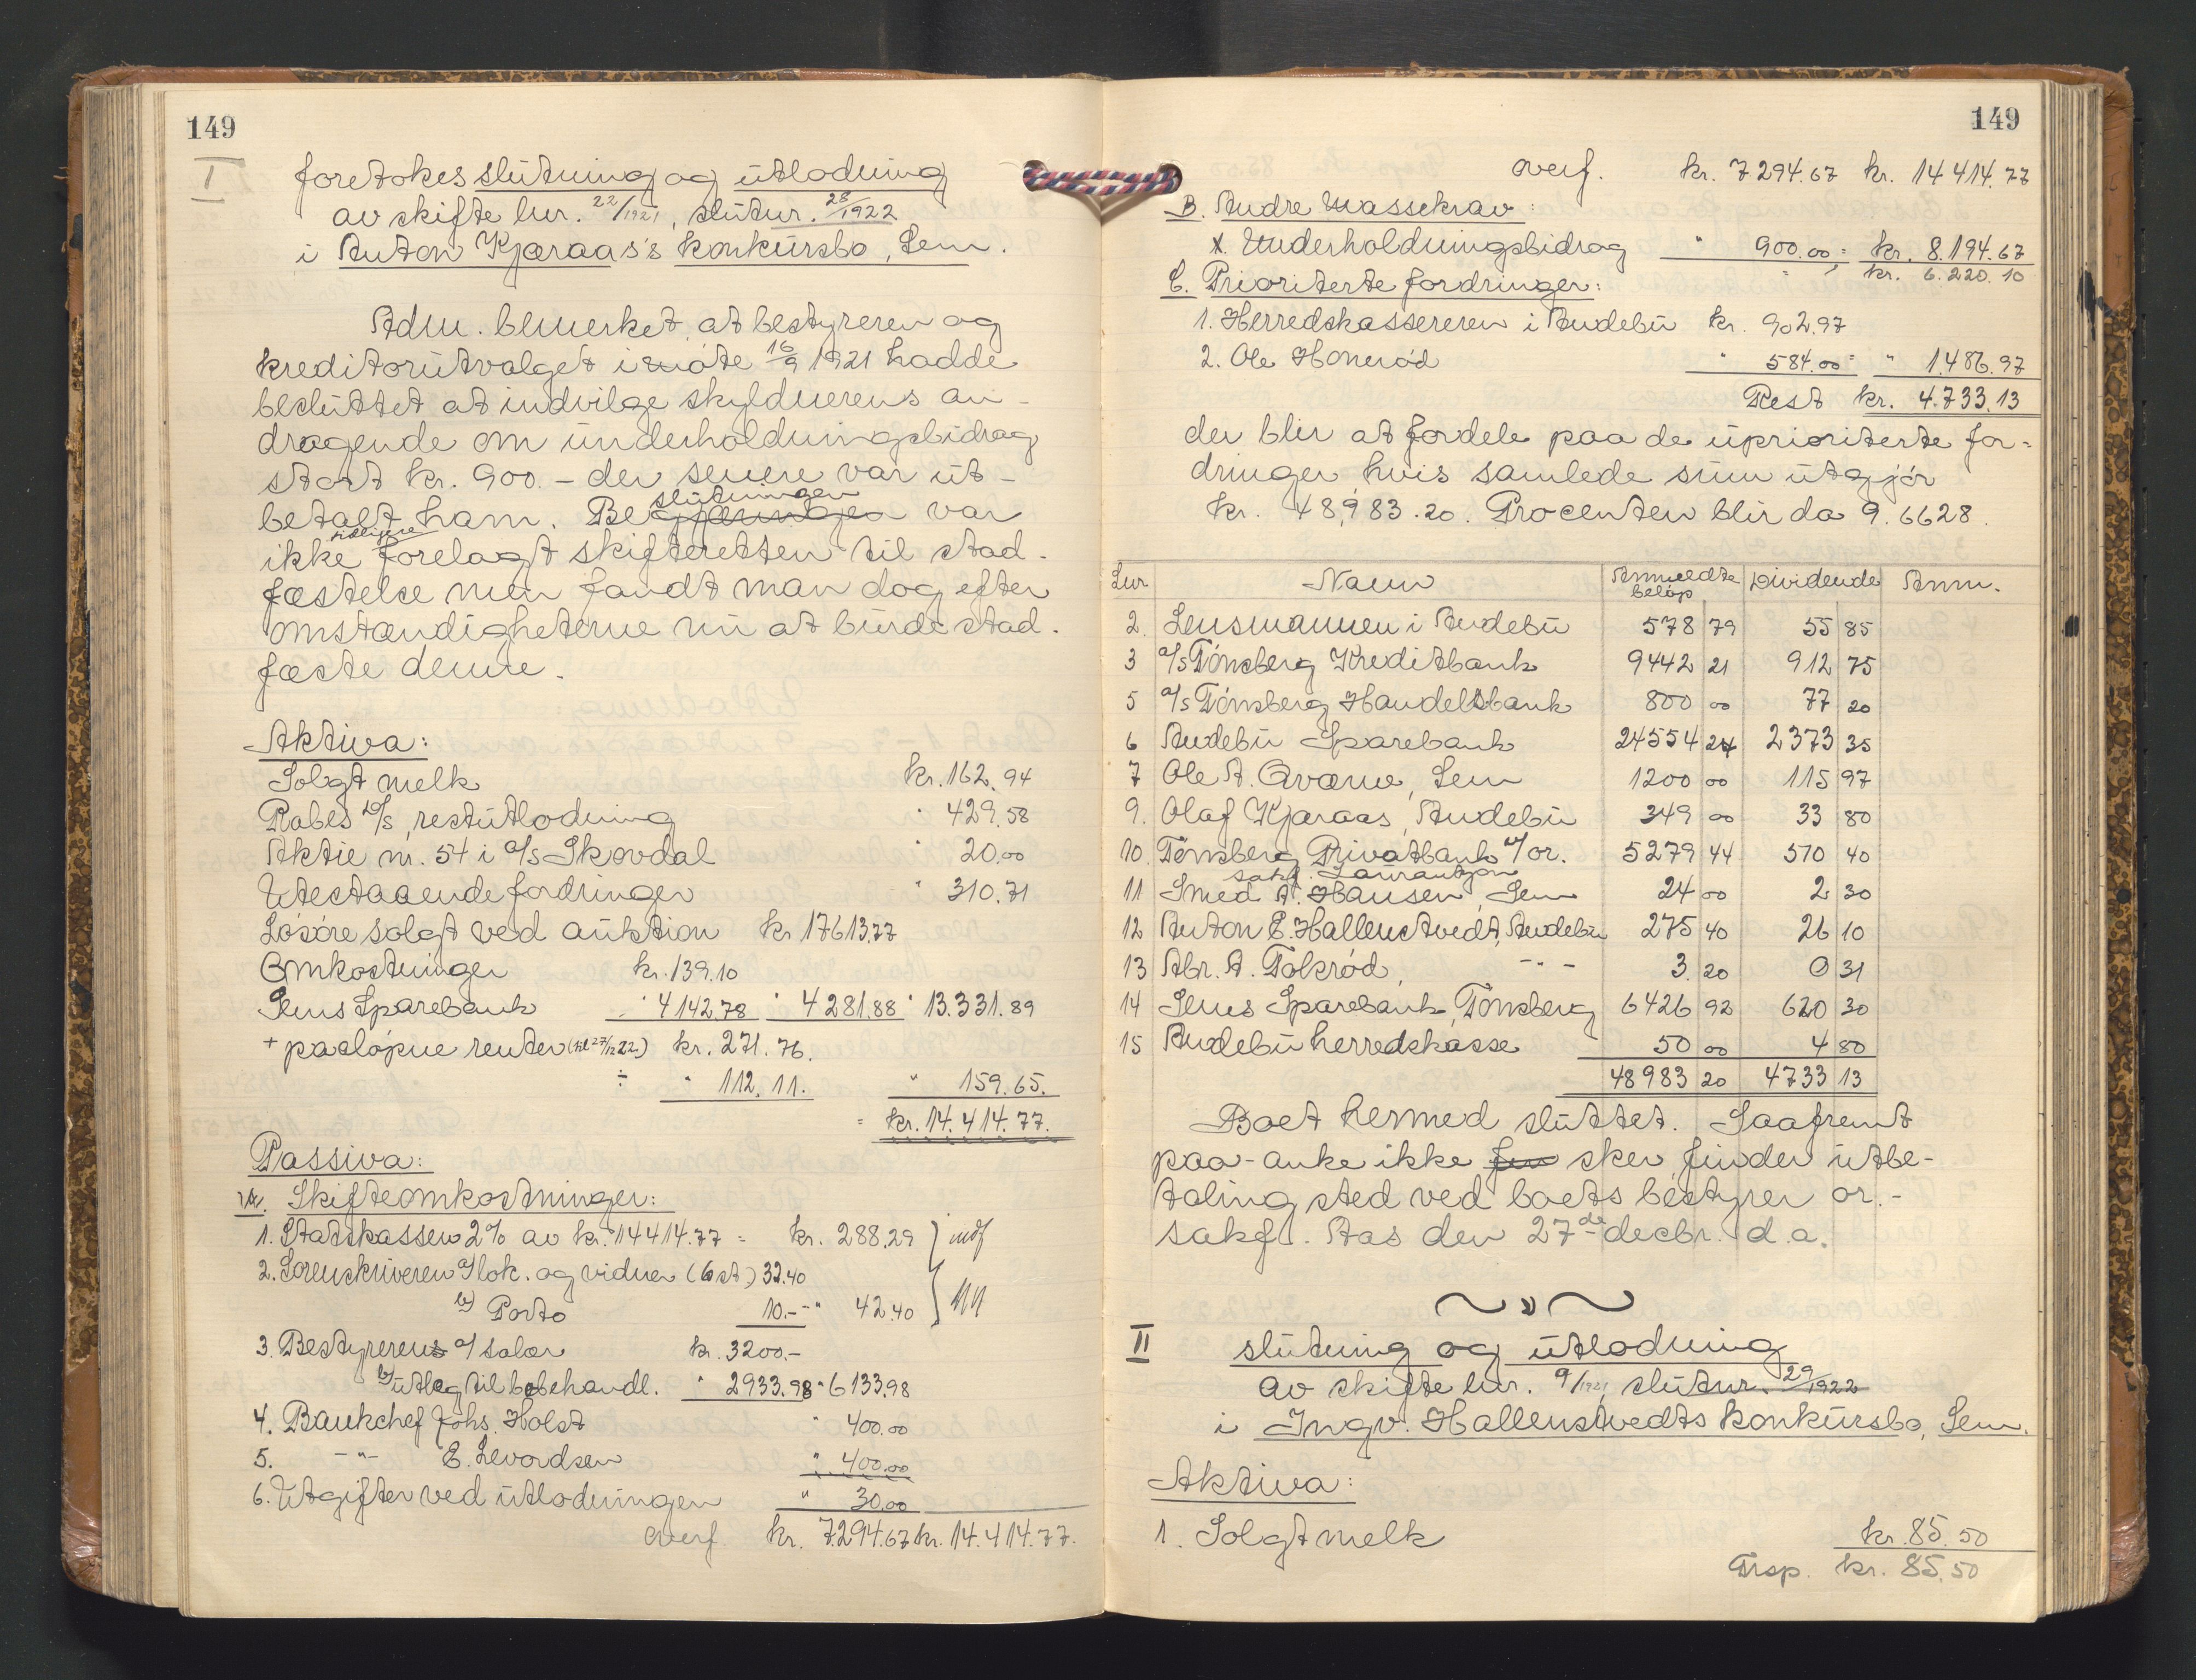 149
I
foretokes slutning og utlodning
av skifte lnr. 22/1921, slutnr. 28/1922
i Anton Kjæraas's konkursbo, Sem.
Adm. bemerket, at bestyreren og
kreditorutvalget i møte 16/9 1921 hadde
besluttet at indvilge skyldnerens an-
dragende om underholdningsbidrag
stort kr. 900.- der senere var ut-
slutningen
betalt ham. Begjæringen var
tidligere
ikke forelagt skifteretten til stad-
fæstelse men fandt man dog efter
omstændigheterne nu at burde stad-
fæste denne.
Aktiva:
Solgt melk kr. 162.94
Rabes D/S, restutlodning " 429.58
Aktie nr. 54 i A/S Skovdal " 20.00
Utestaaende fordringer " 310.71
Løsøre solgt ved auktion kr 17613.77
Omkostninger kr. 139.10
Sems Sparebank " 4142.78 " 4281.88 " 13.331.89
+ paaløpne renter (til 27/12 22.) kr. 271.76.
÷ " 112.11. " 159.65.
= kr. 14.414.77.
Passiva:
A. Skifteomkostninger:
1. Statskassen 2% av kr. 14414.77 = kr. 288.29
2. Sorenskriveren a/ lok. og vidner (6 st) 32.40
b/ Porto 10.- - " 42.40
3. Bestyrerens a/ salær kr. 3200.-
b/ utlæg til bobehandl. " 2933.98 " 6133.98
4. Bankchef Johs. Holst " 400.00
5. -"- E. Sevordsen " 400.00
6. Utgifter ved utlodningen " 30.00
overf. kr. 7.294.67 kr. 14.414.77.
149
overf. kr. 7294.67 kr. 14414.77
B. Andre massekrav:
1. Underholdningsbidrag " 900.00 = kr. 8.194.67
kr. 6.220.10
C. Prioriterte fordringer:
1. Herredskassereren i Andebu kr. 902.97
2. Ole Honerød " 584.00 = " 1.486.97
Rest kr. 4.733.13
der blir at fordele paa de uprioriterte for-
dringer, hvis samlede sum utgjør
kr. 48,983.20. Procenten blir da 9.6628.
Lnr Navn Anmeldte beløp Dividende Anm.
2. Lensmannen i Andebu 578 79 55 85
3 A/S Tønsberg Kreditbank 9442 21 912 75
5 A/S Tønsberg Handelsbank 800 00 77 20
6 Andebu Sparebank 24554 24 2373 35
7 Ole A. Qværne, Sem 1200 00 115 97
9. Olaf Kjæraas, Andebu 349 00 33 80
10. Tønsberg Privatbank v/ or. 5279 44 510 40
sakf. Laurantzon
11 Smed A. Hansen, Sem 24 00 2 30
12 Anton E. Hallenstvedt, Andebu 275 40 26 10
13 Abr. A. Tolsrød, -"- 3. 20 0 31
14 Sems Sparebank, Tønsberg 6426 92 620 30
15 Andebu herredskasse 50 00 4 80
48983 20 4733 13
Boet hermed sluttet. Saafremt
paa-anke ikke fin sker, finder utbe-
taling sted ved boets bestyrer or.-
sakf. Aas den 27de decbr. d.a.
II slutning og utlodning
av skifte lnr. 9/1921, slutnr. 29/1922
i Ingv. Hallenstvedts konkursbo, Sem.
Aktiva:
1. Solgt melk kr. 85.50
Trsp. kr. 85.50